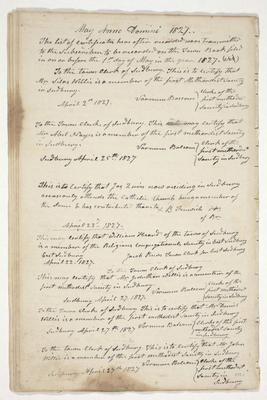 May Anno Domini 1827.
The list of certificates here after recorded was transmitted
to the Subscriber to be recorded on the Town Book filed
in on or before the 1st day of May in the year 1827.
To the town Clerk of Sudbury. This is to certify that
Mr. Silas Willis is a member of the first Methodist Society
in Sudbury.
April 2nd 1827.
Clerk of the
first methodist
Society in Sudbury
To the Town Clerk of Sudbury. This may certify that
Mr Abel is a member of the first methodist Society
in Sudbury.
Clerk of the
first methodist
Society in Sudbury
Sudbury April 25th 1827
This is to certify that now residing in Sudbury
occasionly attends the Catholic Church being a member of
the Same & has contributed
B. Fenwick
of Bo
April 23rd 1827.
This may certify that William of the town of Sudbury
is a member of the Religious congregational Society in East Sudbury
East Sudbury
April 23, 1827.
To the Town Clerk of Sudbury
This may certify that Mr. Jonathan Willis is a member of the
first methodist Society in Sudbury
Clerk of the
first methodist
Society in Sudbury
Sudbury April 27. 1827.
To the Town Clerk of Sudbury This is to certify that Mr
Willis is a member of the first methodist Society in Sudbury
Sudbury April 27th 1827
Clerk of the first
methodist Society
in Sudbury
To the Town Clerk of Sudbury. This is to Certify that Mr John
Willis is a member of the first methodist Society in Sudbury
Clerk of the
first methodist
Society in
Sudbury
Sudbury April 27th 1827